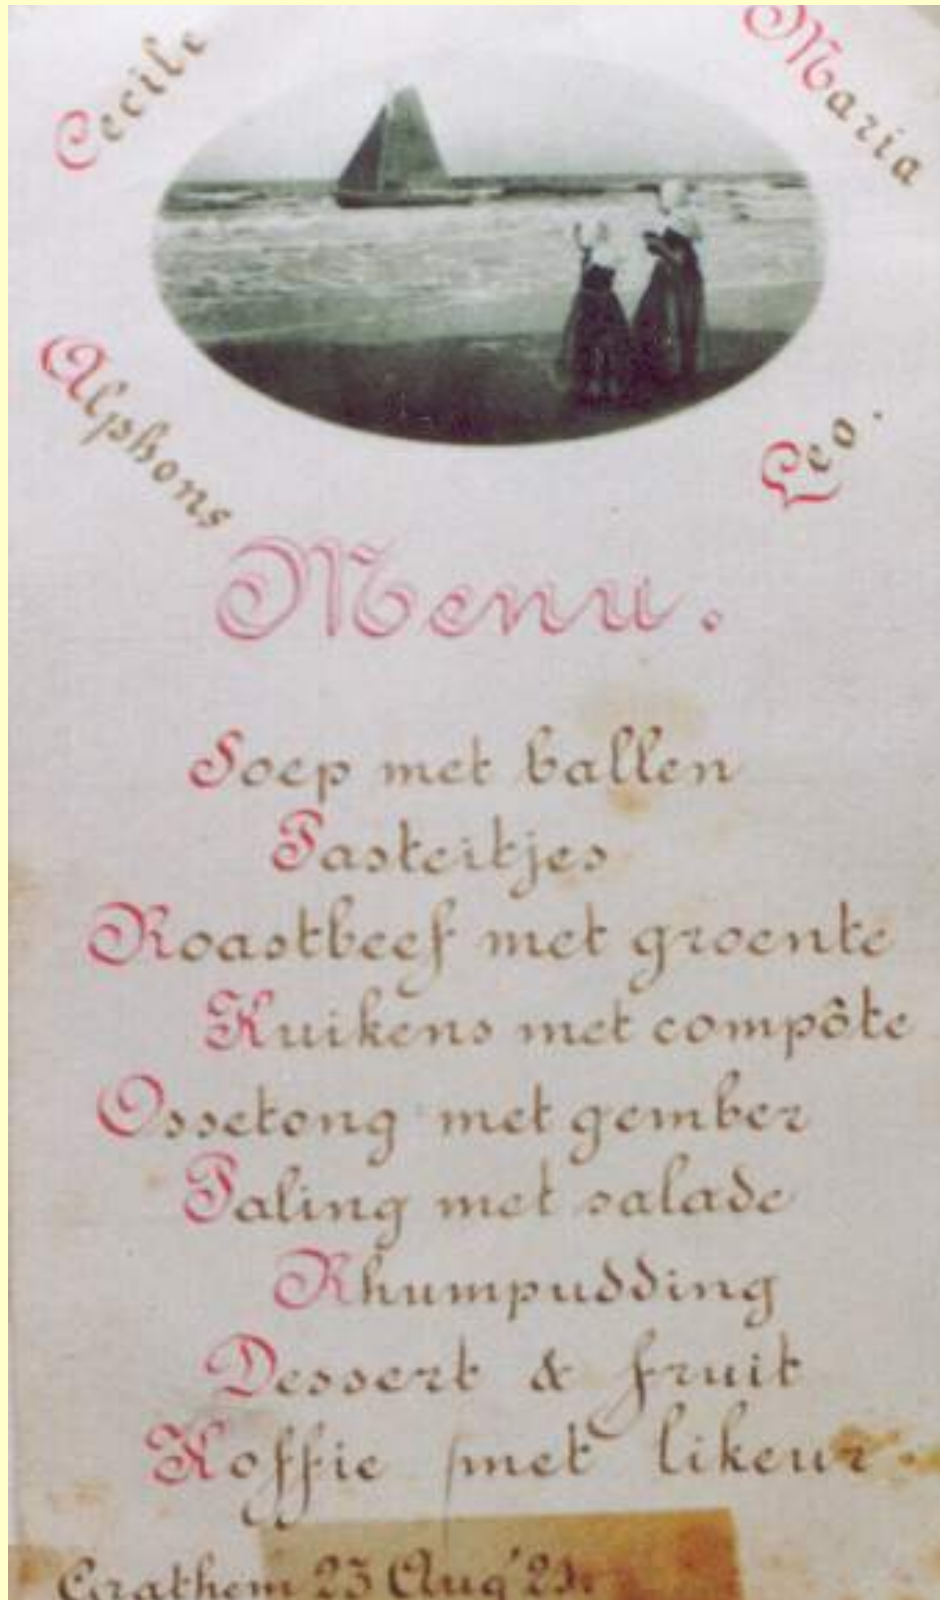 Cecile
Maria
Alphons
Leo.
Menu.
Soep met ballen
Pasteitjes
Roastbeef met groente
Kuikens met compôte
Ossetong met gember
Paling met salade
Rhumpudding
Dessert & fruit
Koffie met likeur.
Grathem 23 Aug